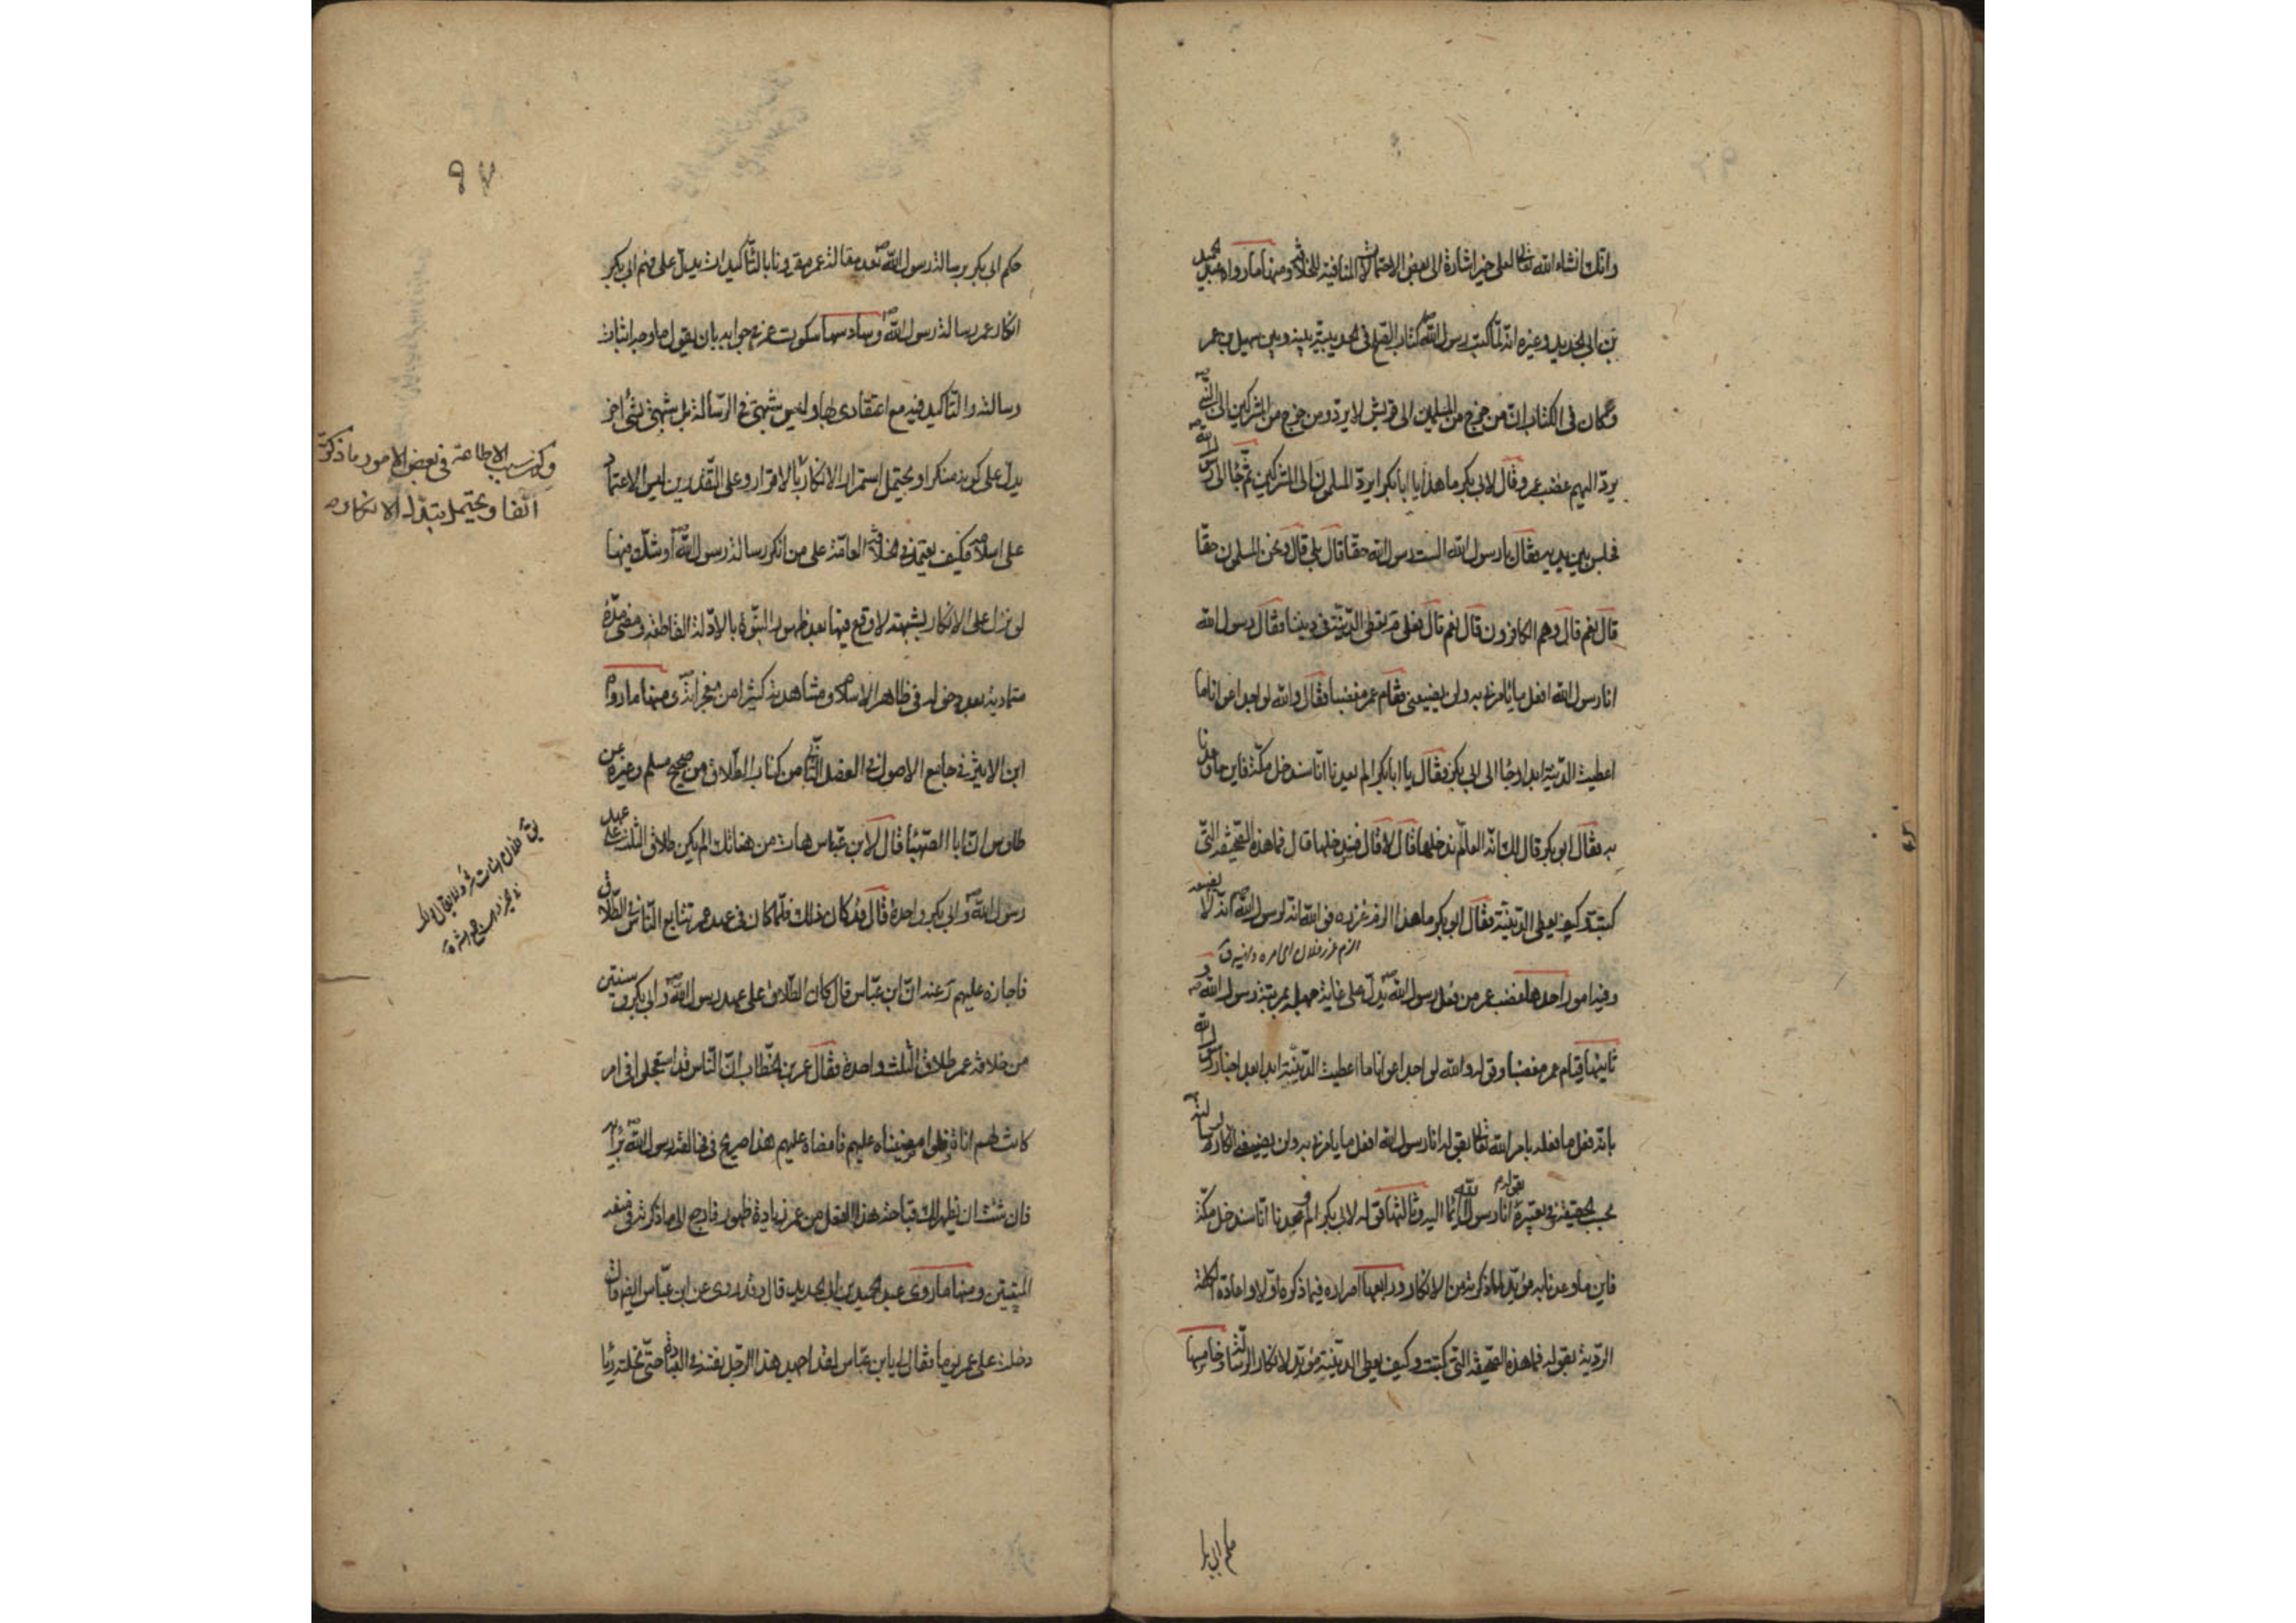 وانك انشاء الله تعالى لعلى خبر اشارة الى بعض الاحتمالات المنافية للخلافة ومنها ما رواه عبد الحميد
بن ابى الحديد وغيره انه لما كتب رسول الله ص كتاب الصلح فى الحديبية بينه وبين سهيل بن عمر
وكان فى الكتاب ان من خرج من المسلمين الى قريش لا يرد ومن خرج من المشركين الى النبى ص
يرد اليهم غضب عمر وقال لابى بكر ما هذا يا ابا بكر ايرد المسلمون الى المشركين ثم جاء الى رسول الله ص
فجلس بين يديه فقال يا رسول الله الست رسول الله حقا قال بلى قال ونحن المسلمون حقا
قال نعم قال وهم الكافرون قال نعم قال فعلى م نعطى الدنية فى ديننا فقال رسول الله
انا رسول الله افعل ما يأمرنى به ولن يضيعنى فقام عمر مغضبا وقال والله لو اجد اعوانا ما
اعطيت الدنية ابدا وجاء الى ابى بكر فقال يا ابا بكر الم يعدنا انا سندخل مكة فاين ما وعدنا
به فقال ابو بكر قال لك انه العام ندخلها قال لا قال فسندخلها قال فما هذه الصحيفة التى
كتبت وكيف نعطى الدنية فقال ابو بكر يا هذا الزم غرزه فو الله انه لرسول الله ص انه لا يضيعه
الزم غرز فلان اى امره ونهيه ق
وفيه امور احدها غضب عمر من فعل رسول الله ص يدل على غاية جهله بمرتبة رسول الله ص و
ثانيها قيام عمر مغضبا وقوله والله لو اجد اعوانا ما اعطيت الدنية ابدا بعد اخبار رسول الله
بانه فعل ما فعله بامر الله تعالى بقوله انا رسول الله افعل ما يامرنى به ولن يضيعنى انكار رسالته
بحسب الحقيقة انا رسول الله وثالثها قوله لابى بكر الم يعدنا انا سندخل مكة
فاين ما وعدنا به مؤيد لما ذكرته من الانكار ورابعها اصراره فيما ذكره اولا واعادة
الردية بقوله فما هذه الصحيفة التى كتبت وكيف نعطى الدنية مؤيد لانكار الرسالة وخامسها
حكم ابى بكر
٩٧
حكم ابى بكر برسالة رسول الله ص بعد مقالة عمر مقرونا بالتأكيدات يدل على فهم ابى بكر
انكار عمر رسالة رسول الله ص وسادسها سكوت عمر عن جوابه بان يقول ما وجه اثبات
رسالته والتأكيد فيه مع اعتقادى بها وليس شبهتى فى الرسالة بل شبهتى بشىء اخر
يدل على كونه منكرا ويحتمل استمرار الانكار الاقرار وعلى التقديرين ليس الاعتماد
على اسلامه فكيف يعتمد فى الخلافة العامة على من انكر رسالة رسول الله ص او شك فيها
لو نزل على الانكار بشبهة لا وقع فيها بعد ظهور النبوة بالادلة القاطعة ومضى مدة
متمادية بعد دخوله فى ظاهر الاسلام ومشاهدته كثيرا من معجزاته ومنها ما رواه
ابن الاثير فى جامع الاصول فى الفصل الثانى من كتاب الطلاق من صحيح مسلم وغيره عن
طاوس ان ابا الصهباء قال لابن عباس هات من هناتك الم يكن طلاق الثلث على عهد
رسول الله ص وابى بكر واحدة قال قد كان ذلك فلما كان فى عهد عمر تتابع الناس فى الطلاق
فاجازه عليهم وعنه ان ابن عباس قال كان الطلاق على عهد رسول الله ص وابى بكر وسنتين
من خلافة عمر طلاق الثلث واحدة فقال عمر بن الخطاب ان الناس قد استعجلوا فى امر
كانت لهم اناة فلو امضيناه عليهم فامضاه عليهم هذا صريح فى مخالفة رسول الله ص برأيه
فان شئت ان يظهر لك قباحة هذا الفعل من عمر زيادة ظهور فارجع الى ما ذكرته فى
المتعتين ومنها ما روى عبد الحميد بن ابى الحديد قال وقد روى عن ابن عباس ايضا قال
دخلت على عمر يوما فقال لى يا بن عباس لقد اجهد هذا الرجل نفسه فى العبادة حتى نحلته رياء
سبب الاطاعة فى بعض الامور ما ذكرته
آنفا ويحتمل تبدل الانكار